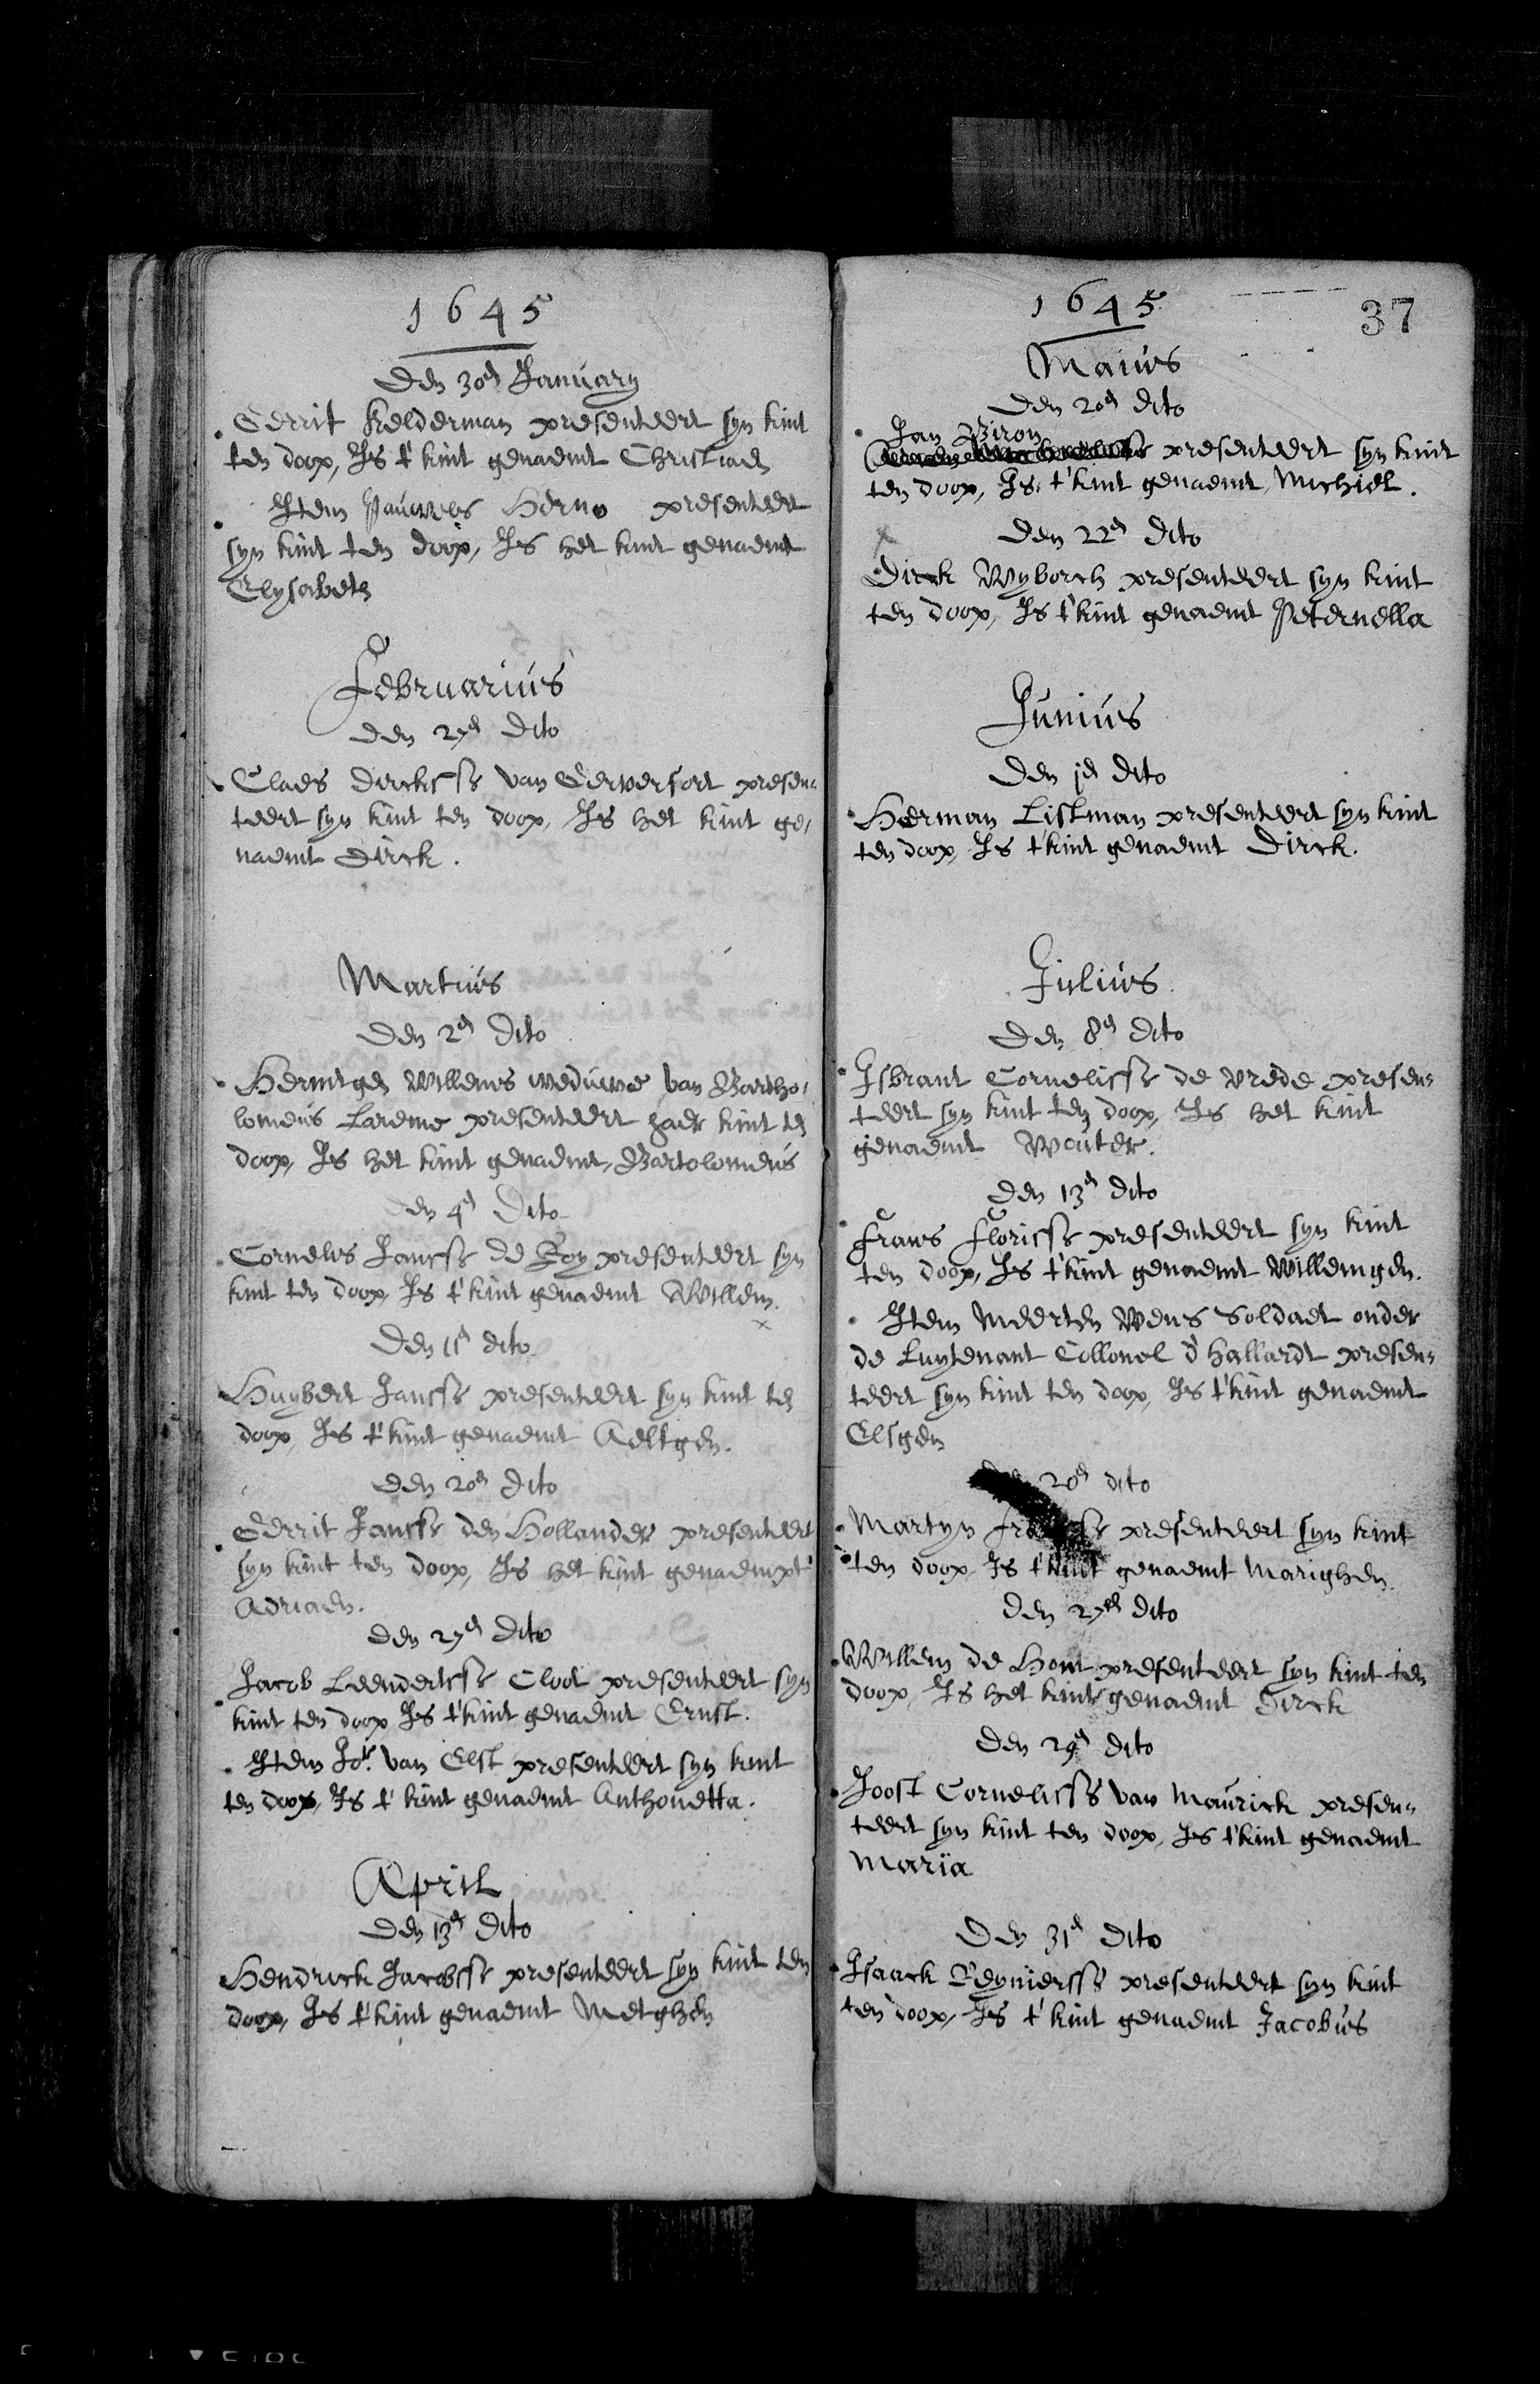 1645
Den 30en January
Gerrit Kelderman presenteert syn kint
ten doop, Is t' kint genaemt Christiaen
Item Pauwels Herno presenteert
syn kint ten doop, Is het kint genaemt
Elysabeth
Februarius
Den 27en Dito
Claes Dirckssse van presen-
teert syn kint ten doop, Is het kint ge-
naemt Dirck.
Martius
Den 2en Dito
Hermtgen Willems weduwe van Bartho-
lomeus presenteert haer kint ten
doop, Is het kint genaemt, Bartolomeus
Den 4en Dito
Cornelis Jansse de Roy presenteert syn
kint ten doop, Is t' kint genaemt Willem.
Den 11en dito
Huybert Jansse presenteert syn kint ten
doop, Is t' kint genaemt Aeltgen.
Den 20en Dito
Gerrit Jansse den Hollander presenteert
syn kint ten doop, Is het kint genaempt
Adriaen.
Den 27en Dito
Jacob Leendertsse Cloot presenteert syn
kint ten doop Is t' kint genaemt Ernst.
Item Jor. van Elst presenteert syn kint
ten doop, Is t' kint genaemt Anthonetta.
April
Den 13en Dito
Hendrick Jacobsse presenteert syn kint ten
doop, Is t' kint genaemt Metghen
1645
37
Maius
Den 20en dito
Jan Biron
presenteert syn kint
ten doop, Is, t' kint genaemt, Michiel.
Den 22en Dito
Dirck Wyborch presenteert syn kint
ten doop, Is t' kint genaemt Peternella
Junius
Den jen dito
Herman Listman presenteert syn kint
ten doop, Is t' kint genaemt Dirck.
Julius
Den 8en Dito
Isbrant Cornelisse de Vrede presen-
teert syn kint ten doop, Is het kint
genaemt Wouter.
Den 13en Dito
Frans Florisse presenteert syn kint
ten doop, Is t' kint genaemt Willemgen.
Item Meerten Wens Soldaet onder
de Luytenant Collonel d'Hallardt presen-
teert syn kint ten doop, Is t' kint genaemt
Elsgen
Den 20en dito
Martyn presenteert syn kint
ten doop, Is t' kint genaemt Marighen
Den 27en Dito
Willem de Hont presenteert syn kint ten
doop, Is het kint genaemt Dirck
Den 29en Dito
Joost Cornelisse van Maurick presen-
teert syn kint ten doop, Is t' kint genaemt
Maria
Den 31en Dito
Isaack Reyniersse presenteert syn kint
ten doop, Is t' kint genaemt Jacobus